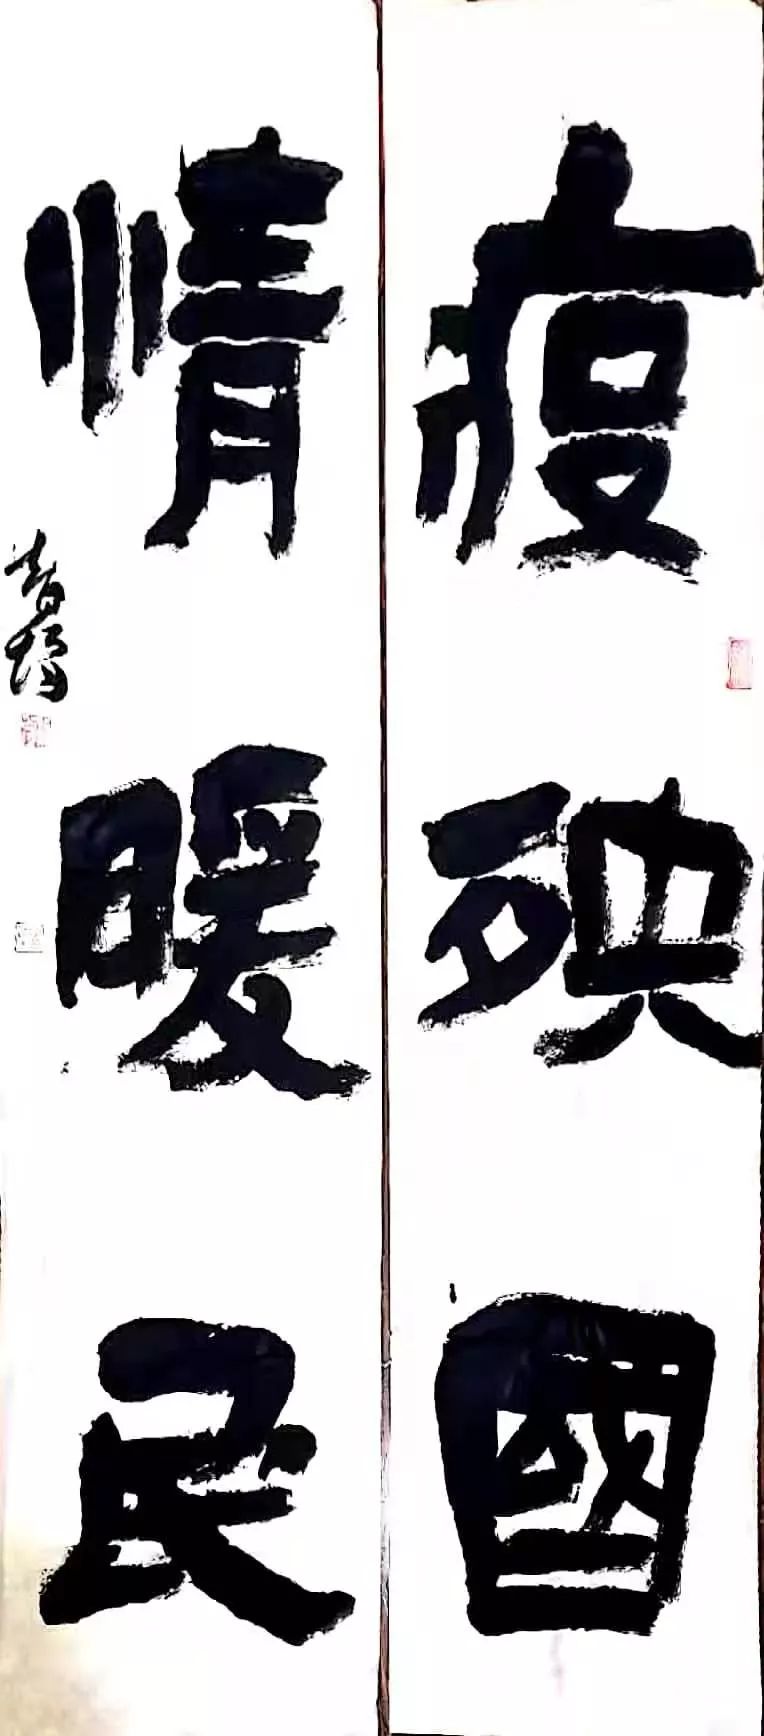 疫殃國
情暖民